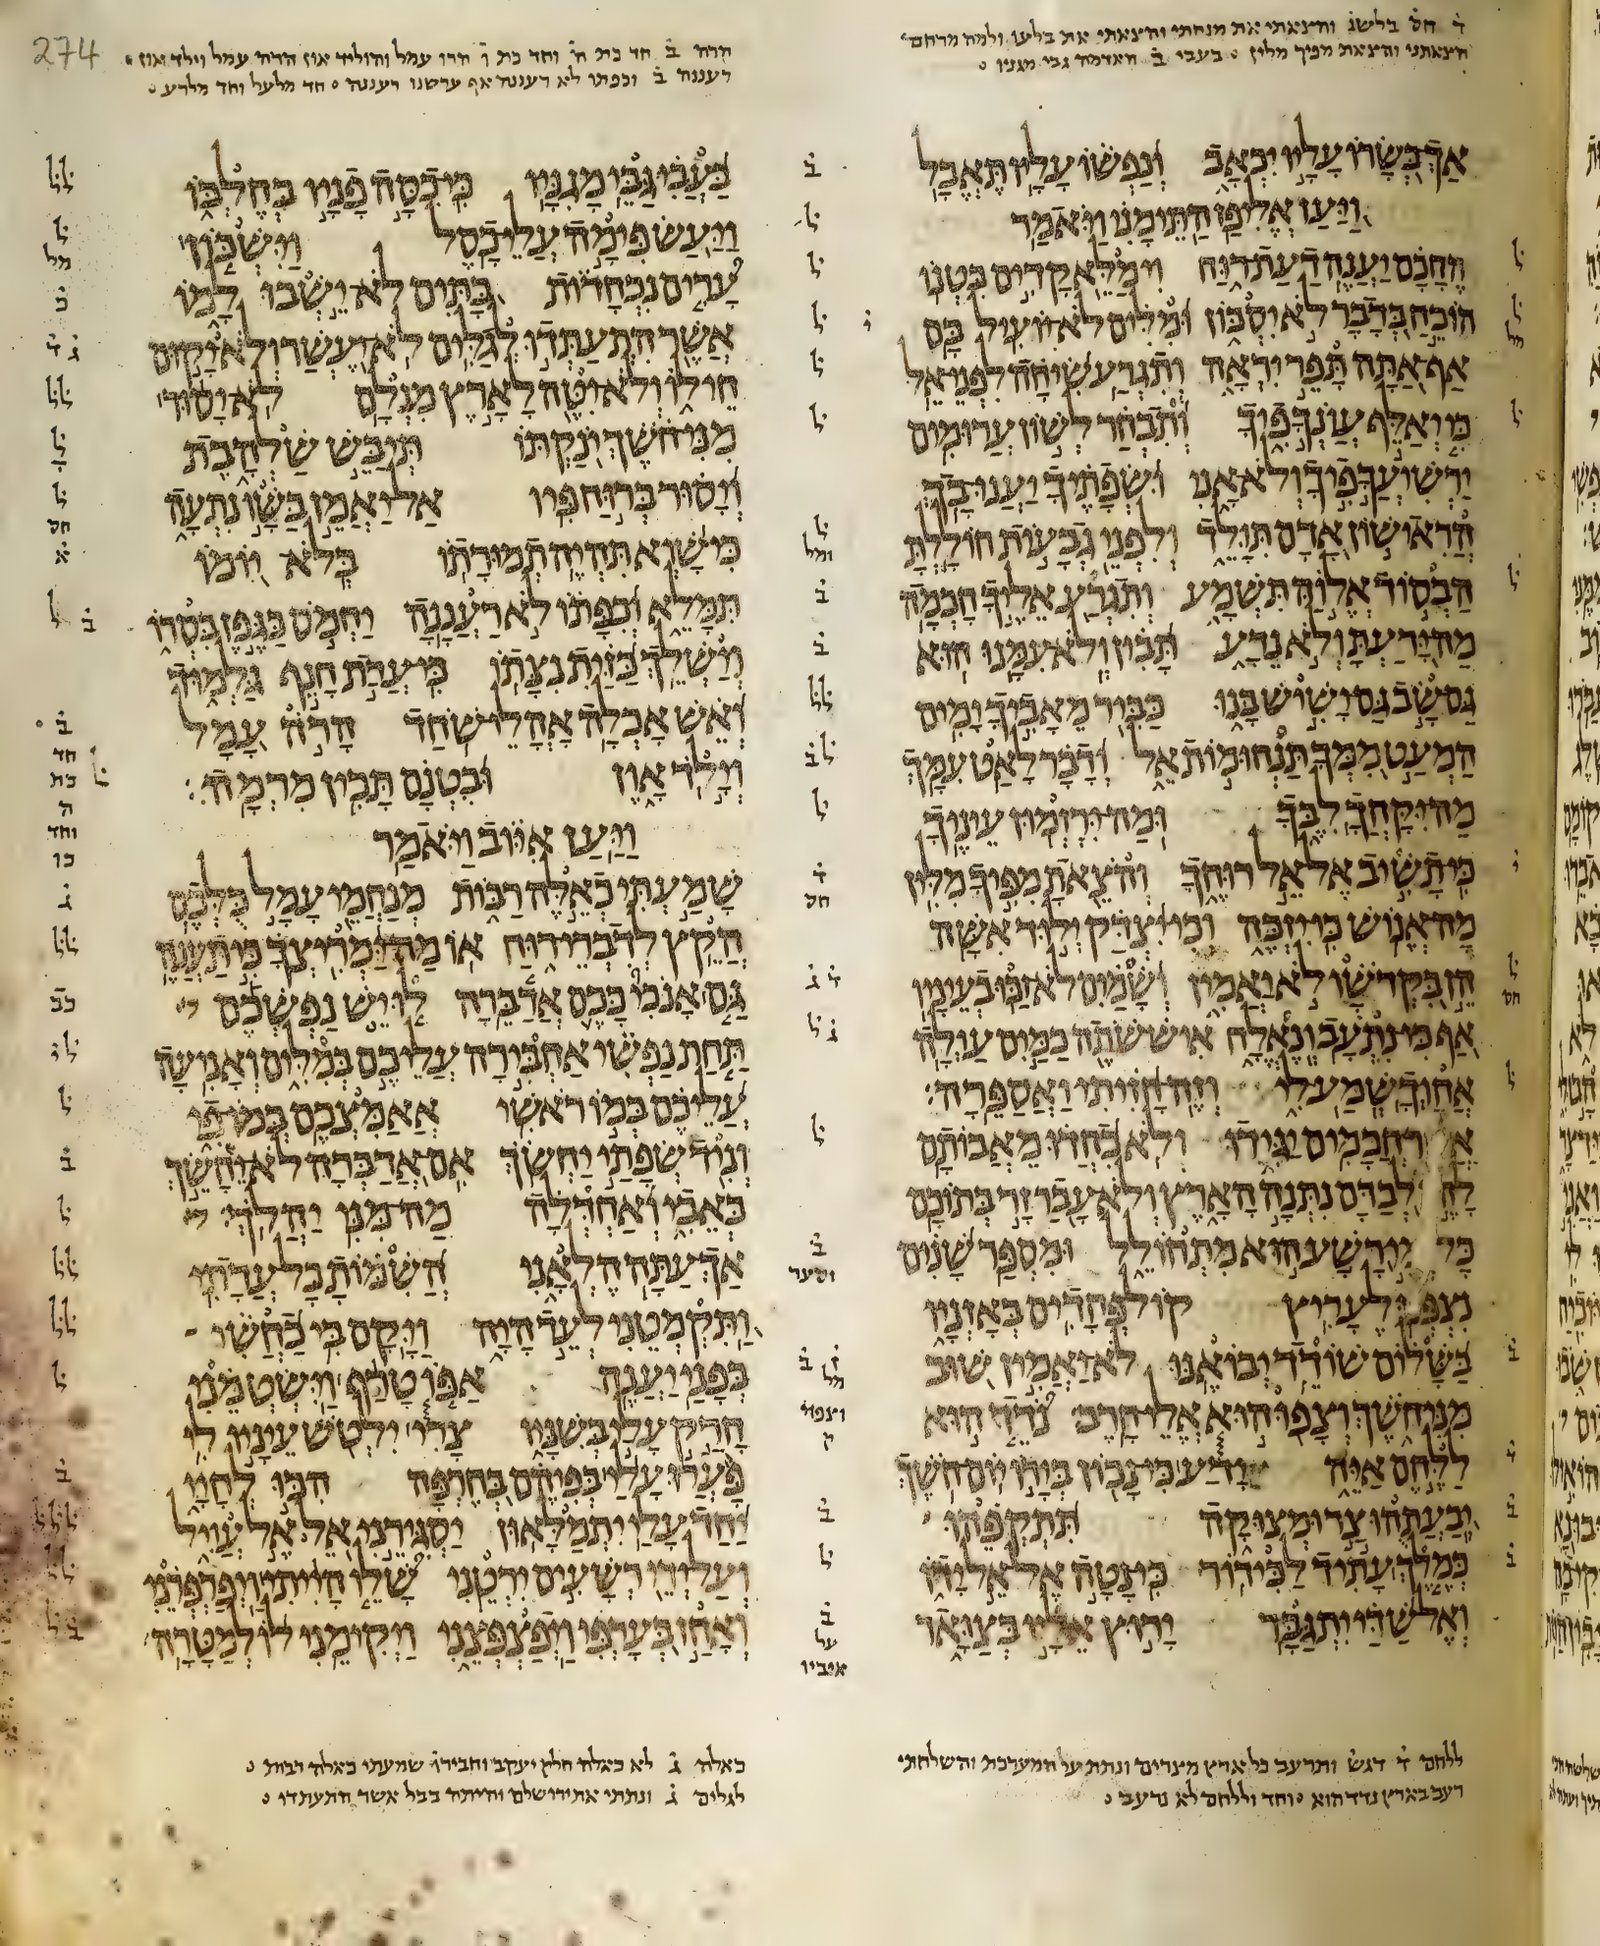 ד חס בלשנ והצאתי את מנחתי והצאתי את בלעו ולמה מרחם
הצאתני והצאת מפיך מלין ׃ בעבי ב האדמה גבי מגניו
אך בשרו עליו יכאב ונפשו עליו תאבל
ויען אליפז התימני ויאמר
החכם יענה דעת רוח וימלא קדים בטנו
הוכח בדבר לא יסכון ומלים לא יועיל בם
אף אתה תפר יראה ותגרע שיחה לפני אל
כי יאלף עונך פיך ותבחר לשון ערומים
ירשיעך פיך ולא אני ושפתיך יענו בך
הראישון אדם תולד ולפני גבעות חוללת
הבסוד אלוה תשמע ותגרע אליך חכמה
מה ידעת ולא נדע תבין ולא עמנו הוא
גם שב גם ישיש בנו כביר מאביך ימים
המעט ממך תנחומות אל ודבר לאט עמך
מה יקחך לבך ומה ירזמון עיניך
כי תשיב אל אל רוחך והצאת מפיך מלין
מה אנוש כי יזכה וכי יצדק ילוד אשה
הן בקדשו לא יאמין ושמים לא זכו בעיניו
אף כי נתעב ונאלח איש שתה כמים עולה
אחוך שמע לי וזה חזיתי ואספרה
חכמים יגידו ולא כחדו מאבותם
לבדם נתנה הארץ ולא עבר זר בתוכם
כל ימי רשע הוא מתחולל ומספר שנים
נצפנו לעריץ קול פחדים באזניו
בשלום שודד יבואנו לא יאמין שוב
מני חשך וצפו הוא אלי חרב נדד הוא
ללחם איה ידע כי נכון בידו יום חשך
יבעתהו צר ומצוקה תתקפהו
כמלך עתיד לכידור כי נטה אל אל ידו
ואל שדי יתגבר ירוץ אליו בצואר
ללחם ד דגש ותרעב כל ארץ מצרים ונתת על המערכת והשלחתי
רעב בארץ נדד הוא וחד וללחם לא נרעב
274
הרה ב חד כת ה וחד כת ו הרו עמל והוליד און הרה עמל וילד און
רעננה ב וכפתו לא רעננה אף ערשנו רעננה חד מלעל וחד מלרע
בעבי גבי מגניו כי כסה פניו בחלבו
ויעש פימה עלי כסל וישכון
ערים נכחדות בתים לא ישבו למו
אשר התעתדו לגלים לא יעשר ולא יקום
חילו ולא יטה לארץ מנלם לא יסור
מני חשך ינקתו תיבש שלהבת
ויסור ברוח פיו אל יאמן בשו נתעה
כי שוא תהיה תמורתו בלא יומו
תמלא וכפתו לא רעננה יחמס כגפן בסרו
וישלך כזית נצתו כי עדת חנף גלמוד
ואש אכלה אהלי שחד הרה עמל
וילד און ובטנם תכין מרמה
ויען איוב ויאמר
שמעתי כאלה רבות מנחמי עמל כלכם
הקץ לדברי רוח או מה ימריצך כי תענה
גם אנכי ככם אדברה לו יש נפשכם
תחת נפשי אחבירה עליכם במלים ואניעה
עליכם במו ראשי אאמצכם במו פי
וניד שפתי יחשך אם אדברה לא יחשך
כאבי ואחדלה מה מני יהלך
אך עתה הלאני השמות כל עדתי
ותקמטני לעד היה ויקם בי כחשי
בפני יענה אפו טרף וישטמני
חרק עלי בשניו צרי ילטש עיניו לי
פערו עלי בפיהם בחרפה הכו לחיי
יחד עלי יתמלאון יסגירני אל אל עויל
ועל ידי רשעים ירטני שלו הייתי ויפרפרני
ואחז בערפי ויפצפצני ויקימני לו למטרה
כאלה ג לא כאלה חלק יעקב וחבירו שמעתי כאלה רבות
לגלים ג ונתתי את ירושלם והיתה בבל אשר התעתדו